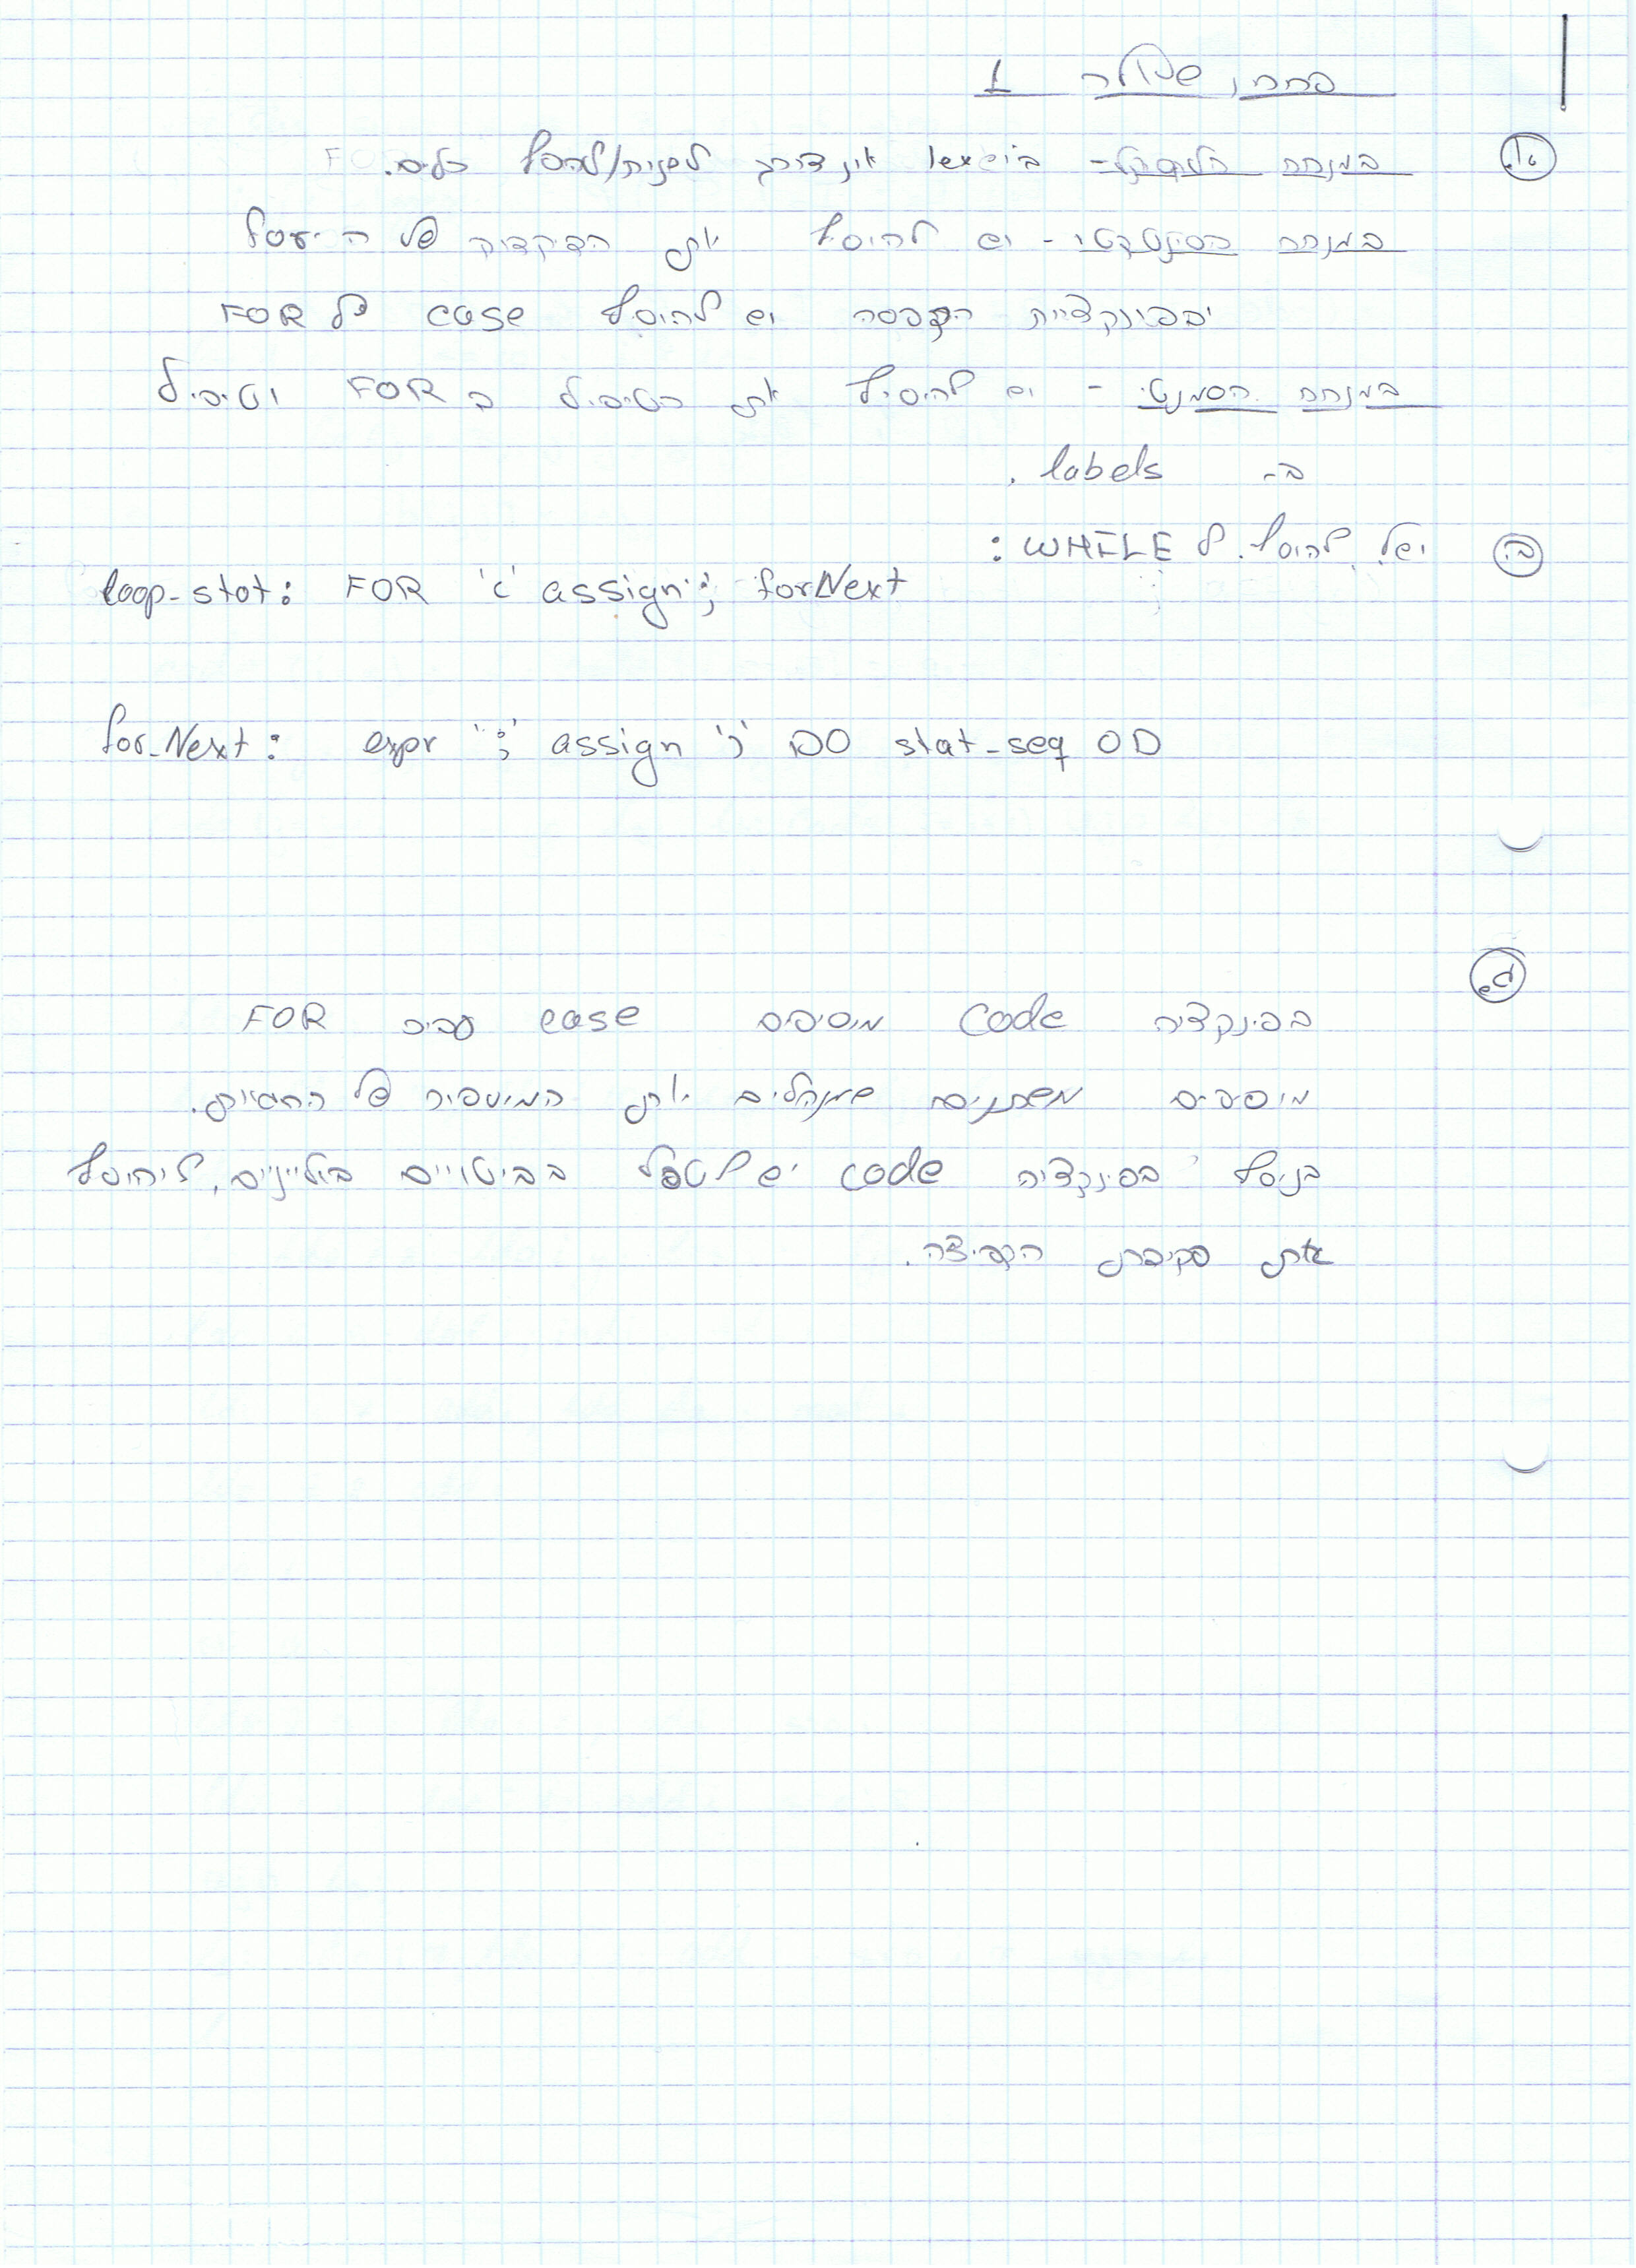 פתרון שאלה 1
א. במנתח הלקסיקלי - אין צורך לשנות/להוסיף כלום.
במנתח הסינטקטי - יש להוסיף את הדקדוק של ה
ובפונקציית הדפסה יש להוסיף case ל FOR
במנתח הסמנטי - יש להוסיף את הטיפול ב FOR וטיפול
ב- labels.
ב. להוסיף ל WHILE :
loop-stat: FOR '(' assign ';' forNext
for-Next: expr ';' assign ')' DO stat-seq OD
ג.
בפונקציה code מוסיפים case עבור FOR
מוסיפים משתנים שמנהלים את המיספור של התוויות.
בנוסף בפונקציה code יש לטפל בביטויים בוליאניים, להוסיף
את פקודת הקפיצה.